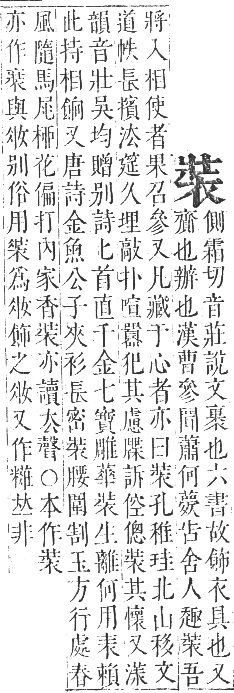 裝
側霜切音莊說文裹也六書故飾衣具也又
齎也辦也漢曹參聞蕭何薨告舍人趣裝吾
將入相使者果召參又凡藏于心者亦曰裝孔稚珪北山移文
道帙長擯法筵久埋敲扑喧囂犯其慮牒訴倥傯裝其懷又漾
韻音壯吳均贈别詩匕首直千金七寶雕華裝生離何用表賴
此持相餉又唐詩金魚公子夾衫長密裝腰圍割玉方行處春
風隨馬尾柳花偏打內家香裝亦讀去聲○本作裝
亦作與妝别俗用裝爲妝飾之妝又作糚𠀋非